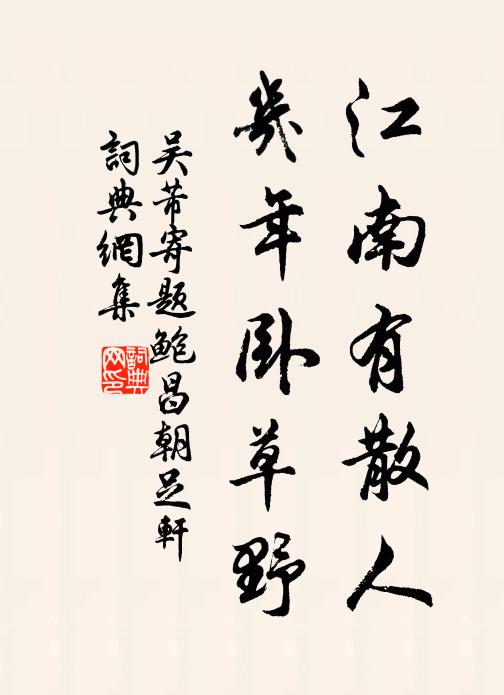 江南有散人
幾年卧草野
吴芾寄题鲍昌朝足軒
詞典網集
詞典网印